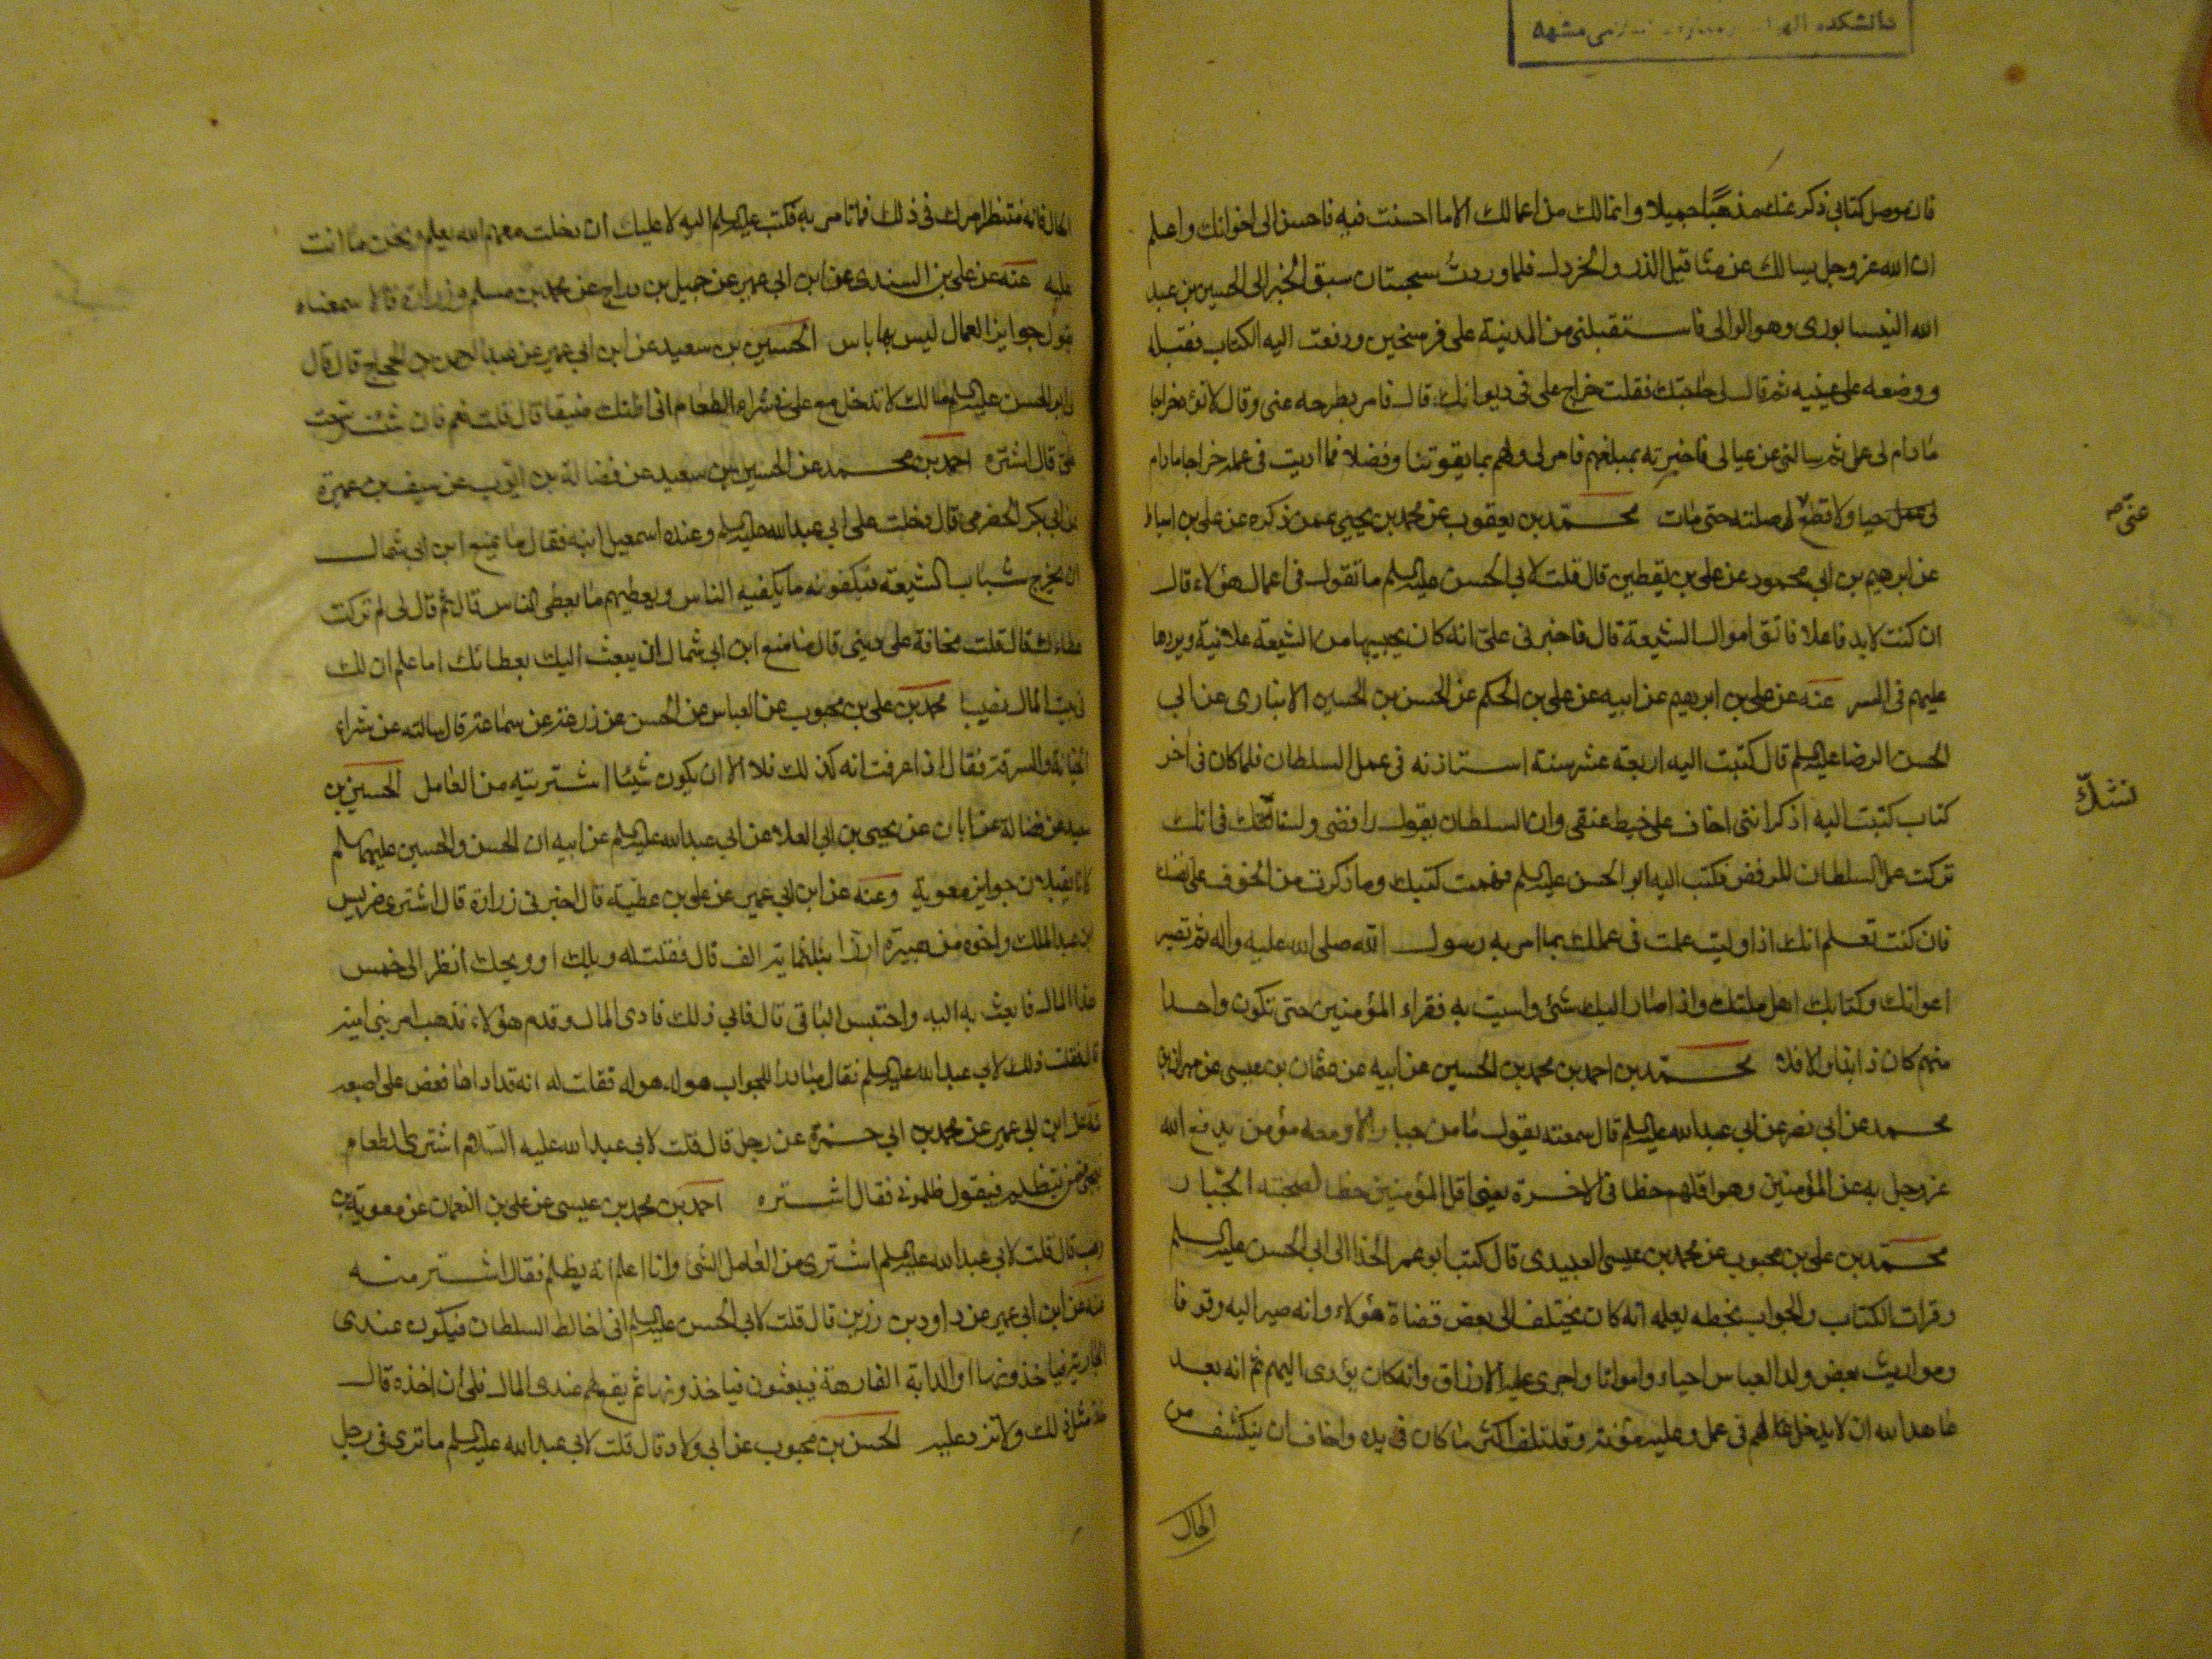 دانشكده الهيات و معارف اسلامى مشهد
فان موصل كتابى ذكر عنك مذهبًا جميلا وانما لك من اعمالك الا ما احسنت فيه فاحسن الى اخوانك واعلم
ان الله عز وجل يسالك عن مثاقيل الذر والخردل فلما وردتُ سجستان سبق الخبر الى الحسين بن عبد
الله النيسابورى وهو الوالى فاستقبلنى من المدينة على فرسخين ودفعت اليه الكتاب فقبله
ووضعه على عينيه ثم قال لى حاجتك فقلت خراج على فى ديوانك قال فامر بطرحه عنى وقال لا تؤد خراجا
ما دام لى عمل ثم سالنى عن عيالى فاخبرته بمبلغهم فامر لى ولهم بما يقوتنا وفضلا فما اديت فى عمله خراجا ما دام
حيا ولا قطع لى صلته حتى مات محمد بن يعقوب عن محمد بن يحيى عمن ذكره عن على بن اسباط
عنى صح
عن ابرهيم بن ابى محمود عن على بن يقطين قال قلت لابى الحسن عليه السلم ما تقول فى اعمال هؤلاء قال
ان كنت لا بد فاعلا فاتق اموال الشيعة قال فاخبرنى على انه كان يجبيها من الشيعة علانية ويردها
عليهم فى السر عنه عن على بن ابرهيم عن ابيه عن على بن الحكم عن الحسن بن الحسين الانبارى عن ابى
الحسن الرضا عليه السلم قال كتبت اليه اربعة عشر سنة استاذنه فى عمل السلطان فلما كان فى اخر
كتاب كتبت اليه اذكر اننى اخاف على خيط عنقى وان السلطان يقول رافضى ولسنا فى انك
نشكّ
تركت عمل السلطان للرفض فكتب اليه ابو الحسن عليه السلم فهمت كتبك وما ذكرت من الخوف على نفسك
فان كنت تعلم انك اذا وليت عملت فى عملك بما امر به رسول الله صلى الله عليه واله ثم تصير
اعوانك وكتابك اهل ملتك واذا صار اليك شئ واسيت به فقراء المؤمنين حتى تكون واحدا
منهم كان ذا بذا والا فلا محمد بن احمد بن محمد بن الحسين عن ابيه عن عثمان بن عيسى عن مهران بن
محمد عن ابى نصر عن ابى عبد الله عليه السلم قال سمعته يقول ما من جبار الا ومعه مؤمن يدفع الله
عز وجل به عن المؤمنين وهو اقلهم حظا فى الاخرة يعنى اقل المؤمنين حظا لصحبته الجبار
محمد بن على بن محبوب عن محمد بن عيسى العبيدى قال كتب ابو عمر الحذا الى ابى الحسن عليه السلم
وقرات الكتاب والجواب بخطه يعلمه انه كان يختلف الى بعض قضاة هؤلاء وانه صير اليه وقوفا
ومواريث بعض ولد العباس احياء وامواتا واجرى عليه الارزاق وانه كان يؤدى اليهم ثم انه بعد
عاهد الله ان لا يدخل لهم فى عمل وعليه مؤنة وقد تلف اكثر ما كان فى يده واخاف ان ينكشف من
الحال
الحال فانه منتظر امرك فى ذلك فما تامر به فكتب عليه السلم اليه لا عليك ان دخلت معهم الله يعلم ونحن ما انت
عليه عنه عن على بن السندى عن ابن ابى عمير عن جميل بن دراج عن محمد بن مسلم وزرارة قالا سمعناه
يقول جوايز العمال ليس بها باس الحسين بن سعيد عن ابن ابى عمير عن عبد الرحمن بن الحجاج قال قال
لى ابو الحسن عليه السلم مالك لا تدخل مع على فى شراء الطعام انى اظنك ضيقا قال قلت نعم فان شئت وسعت
على قال اشتره احمد بن محمد عن الحسين بن سعيد عن فضالة بن ايوب عن سيف بن عميرة
عن ابى بكر الحضرمى قال دخلت على ابى عبد الله عليه السلم وعنده اسمعيل ابنه فقال ما يمنع ابن ابى شمال
ان يخرج شباب الشيعة فيكفونه ما يكفيه الناس ويعطيهم ما يعطى الناس قال ثم قال لى لم تركت
عطاءك قال قلت مخافة على دينى قال ما منع ابن ابى شمال ان يبعث اليك بعطائك اما علم ان لك
فى بيت المال نصيبا محمد بن على بن محبوب عن العباس عن الحسن عن زرعة عن سماعة قال سالته عن شراء
الخيانة والسرقة فقال اذا عرفت انه كذلك فلا الا ان يكون شيئا اشتريته من العامل الحسين بن
سعيد عن فضالة عن ابان عن يحيى بن ابى العلا عن ابى عبد الله عليه السلم عن ابيه ان الحسن والحسين عليهما السلم
كانا يقبلان جوايز معوية وعنه عن ابن ابى عمير عن على بن عطية قال اخبرنى زرارة قال اشترى ضريس
بن عبد الملك واخوه من هبيرة ارزا بثلثمائة الف قال فقلت له ويلك او ويحك انظر الى خمس
هذا المال فابعث به اليه واحتبس الباقى قال فابى ذلك فادى المال وقدم هؤلاء فذهب امر بنى امية
قال فقلت ذلك لابى عبد الله عليه السلم فقال مبادرا للجواب هو له هو له فقلت له انه قد اداها فعض على اصبعه
عنه عن ابن ابى عمير عن محمد بن ابى حمزة عن رجل قال قلت لابى عبد الله عليه السلام اشترى الطعام
فيجيئنى من يتظلم فيقول ظلمونى فقال اشتره احمد بن محمد بن عيسى عن على بن النعمان عن معوية بن
وهب قال قلت لابى عبد الله عليه السلم اشترى من العامل الشئ وانا اعلم انه يظلم فقال اشتر منه
عنه عن ابن ابى عمير عن داود بن رزين قال قلت لابى الحسن عليه السلم انى اخالط السلطان فيكون عندى
الجارية فياخذونها او الدابة الفارهة فيبعثون فياخذونها ثم يقع لهم عندى المال فلى ان اخذه قال
خذ مثل ذلك ولا تزد عليه الحسن بن محبوب عن ابى ولاد قال قلت لابى عبد الله عليه السلم ما ترى فى رجل